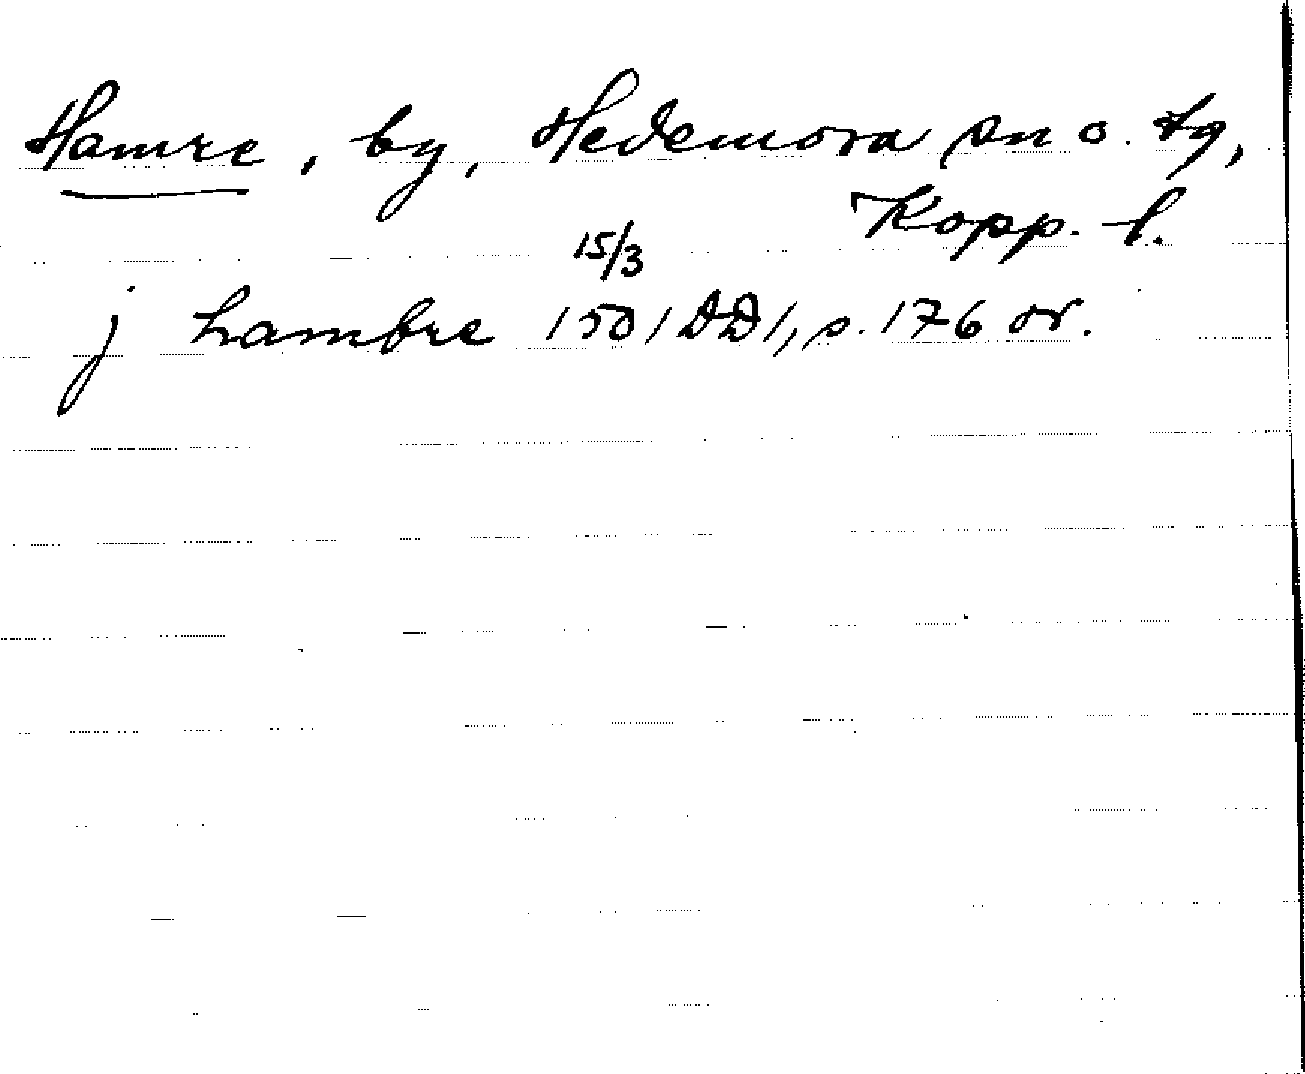 Hamre, by, Hedemora sn o. tg,
Kopp. l.
15/3
j hambre 1501 DD1, s. 176 or.